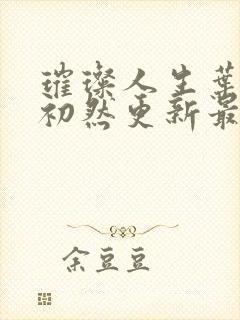 璀璨人生葉
初然更新最
余豆豆